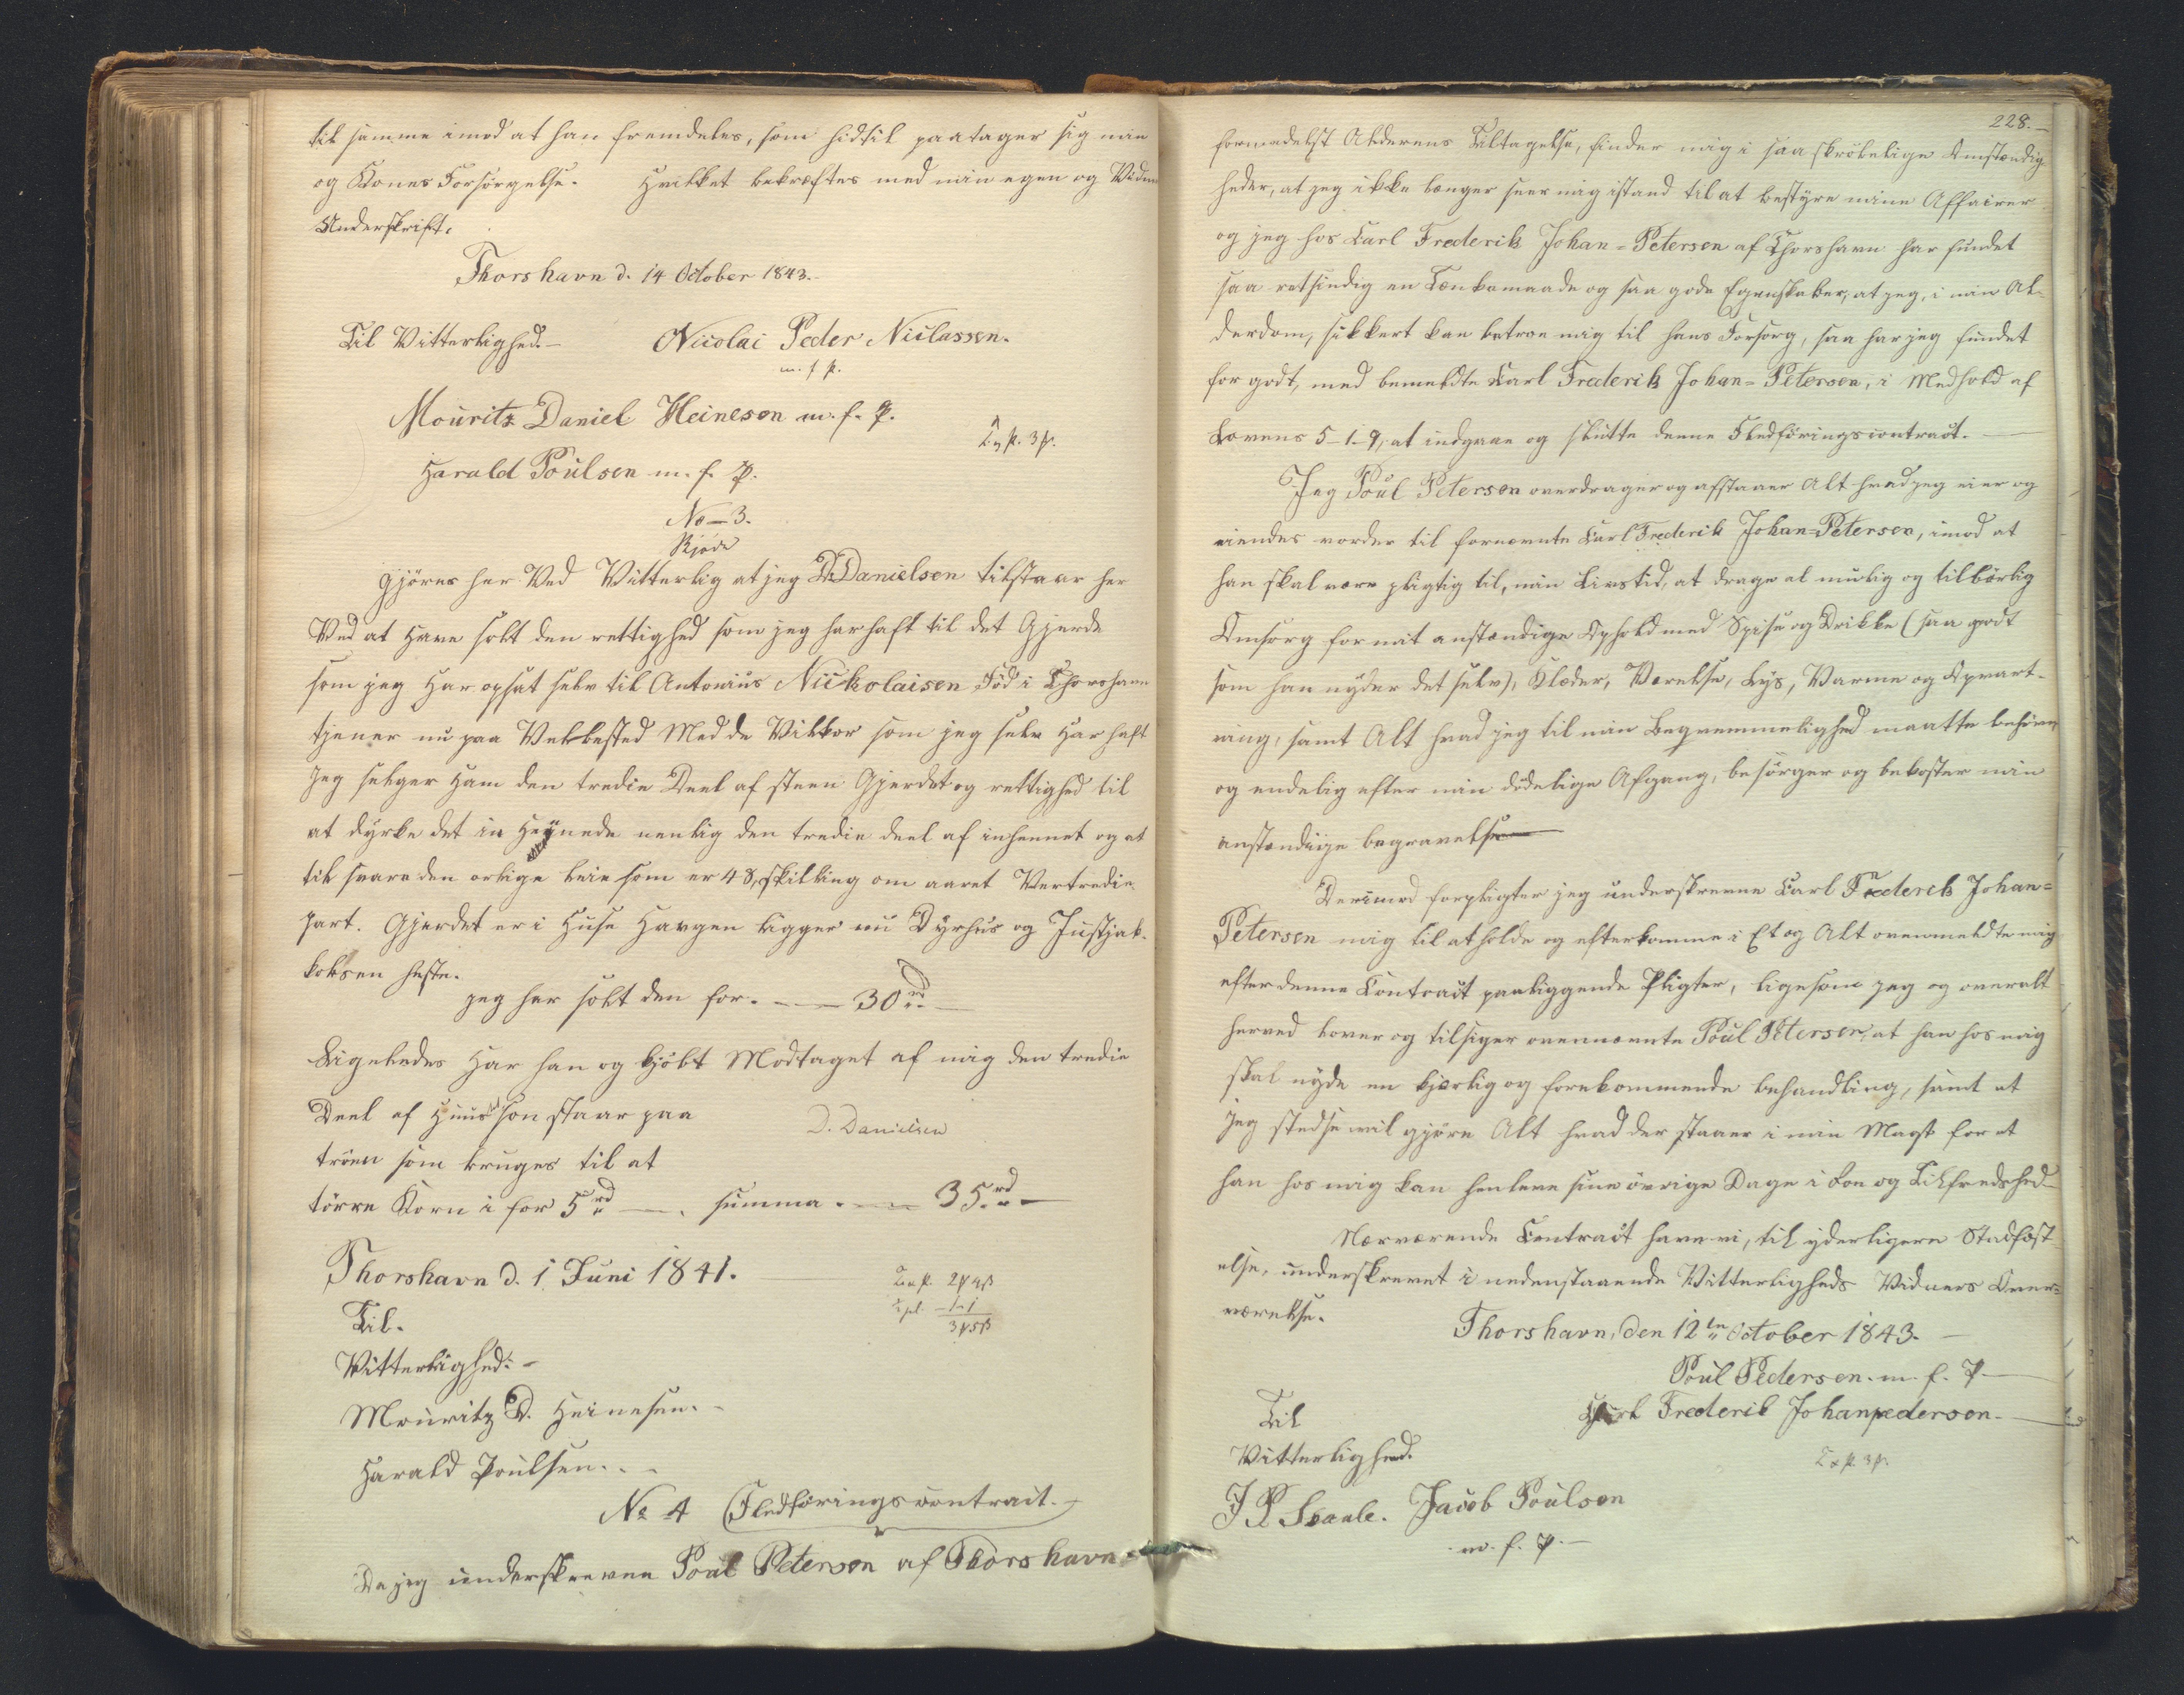 til samme imod at han fremdeles, som hidtil paatager sig min
og Kones Forsörgelse. Hvilket bekræftes med min egen og Vidners
Underskrift.
Thorshavn d. 14 October 1843.
Til Vitterlighed.— Nicolai Peder Niclassen.
m. f. p.
Mouritz Daniel Heineson m. f. p.
Harald Poulsen m. f. P.
No—3.
Skjöde
Gjöres her Ved Vitterlig at jeg D. Danielsen tilstaar her
Ved at Have solt den rettighed som jeg har haft til det Gjerde
som jeg Har opsat selv til Antonius Nickolaisen Föd i Thorshavn
tjener nu paa Velbested Med de Vilkor som jeg selv Har haft
Jeg selger Ham den tredie Deel af steen Gjerdet og rettighed til
at dyrke det in Hejnede nemlig den tredie deel af inhennet og at
til svare den orlige leie som er 48, skilling om aaret Vertredie
part. Gjerdet er i Huse Haugen ligger nu Dyrhus og Justjak-
kobsen heste.
jeg har solt den for. — 30 rd
Ligeledes Har han og kjöbt Modtaget af mig den tredie
Deel af Huus son staar paa
D. Danielsen
tröen som bruges til at
törre Korn i for 5 rd —. summa. — 35. rd —
Thorshavn d. 1 Juni 1841.
Til.
Vitterlighed:-
Mouritz D. Heinesen.-
Harald Poulsen..-
No 4 Fledföringscontract.
Da jeg underskrevne Poul Peterson af Thorshavn
228.—
formedelst Alderens Tiltagelse, finder mig i saa skröbelige Omstændig
heder, at jeg ikke længer seer mig istand til at bestyre mine Affairer
og jeg hos Carl Frederik Johan-Petersen af Thorshavn har fundet
saa retsindig en Tænkemaade og saa gode Egenskaber, at jeg, i min Al-
derdom, sikkert kan betroe mig til hans Forsorg, saa har jeg fundet
for godt, med bemeldte Carl Frederik Johan-Peterson, i Medhold af
Lovens 5-1-9, at indgaae og slutte denne Fledföringscontract.—
Jeg Poul Peterson overdrager og afstaaer Alt hvad jeg eier og
eiendes vorder til fornævnte Carl Frederik Johan-Peterson, imod at
han skal være pligtig til, min Livstid, at drage al mulig og tilbörlig
Omsorg for mit anstændige Ophold med Spise og Drikke (saa godt
som han nyder det selv), Klæder, Værelse, Lys, Varme og Opvart-
ning, samt Alt hvad jeg til min Beqvemmelighed maatte behöve,
og endelig efter min dödelige Afgang, besörger og bekoster min
anstændige begravelse—
Derimod forpligter jeg underskrevne Carl Frederik Johan=
Petersen mig til at holde og efterkomme i Et og Alt ovenmeldte mig
efter denne Contract paaliggende Pligter, ligesom jeg og overalt
herved lover og tilsiger ovennævnte Poul Peterson, at han hos mig
skal nyde en kjærlig og forekommende behandling, samt at
jeg stedse vil gjöre Alt hvad der staaer i min Magt for at
han hos mig kan henleve sine övrige Dage i Roe og Tilfredshed—
Nærværende Contract have vi, til yderligere Stadfæst
else, underskrevet i nedenstaaende Vitterligheds Vidners Over=
værelse.
Thorshavn, den 12te October 1843.—
Poul Pedersen. m. f. P.—
Carl Frederik Johanpederson.—
Til
Vitterlighed.
J P Jacob Poulson
m. f. P.—